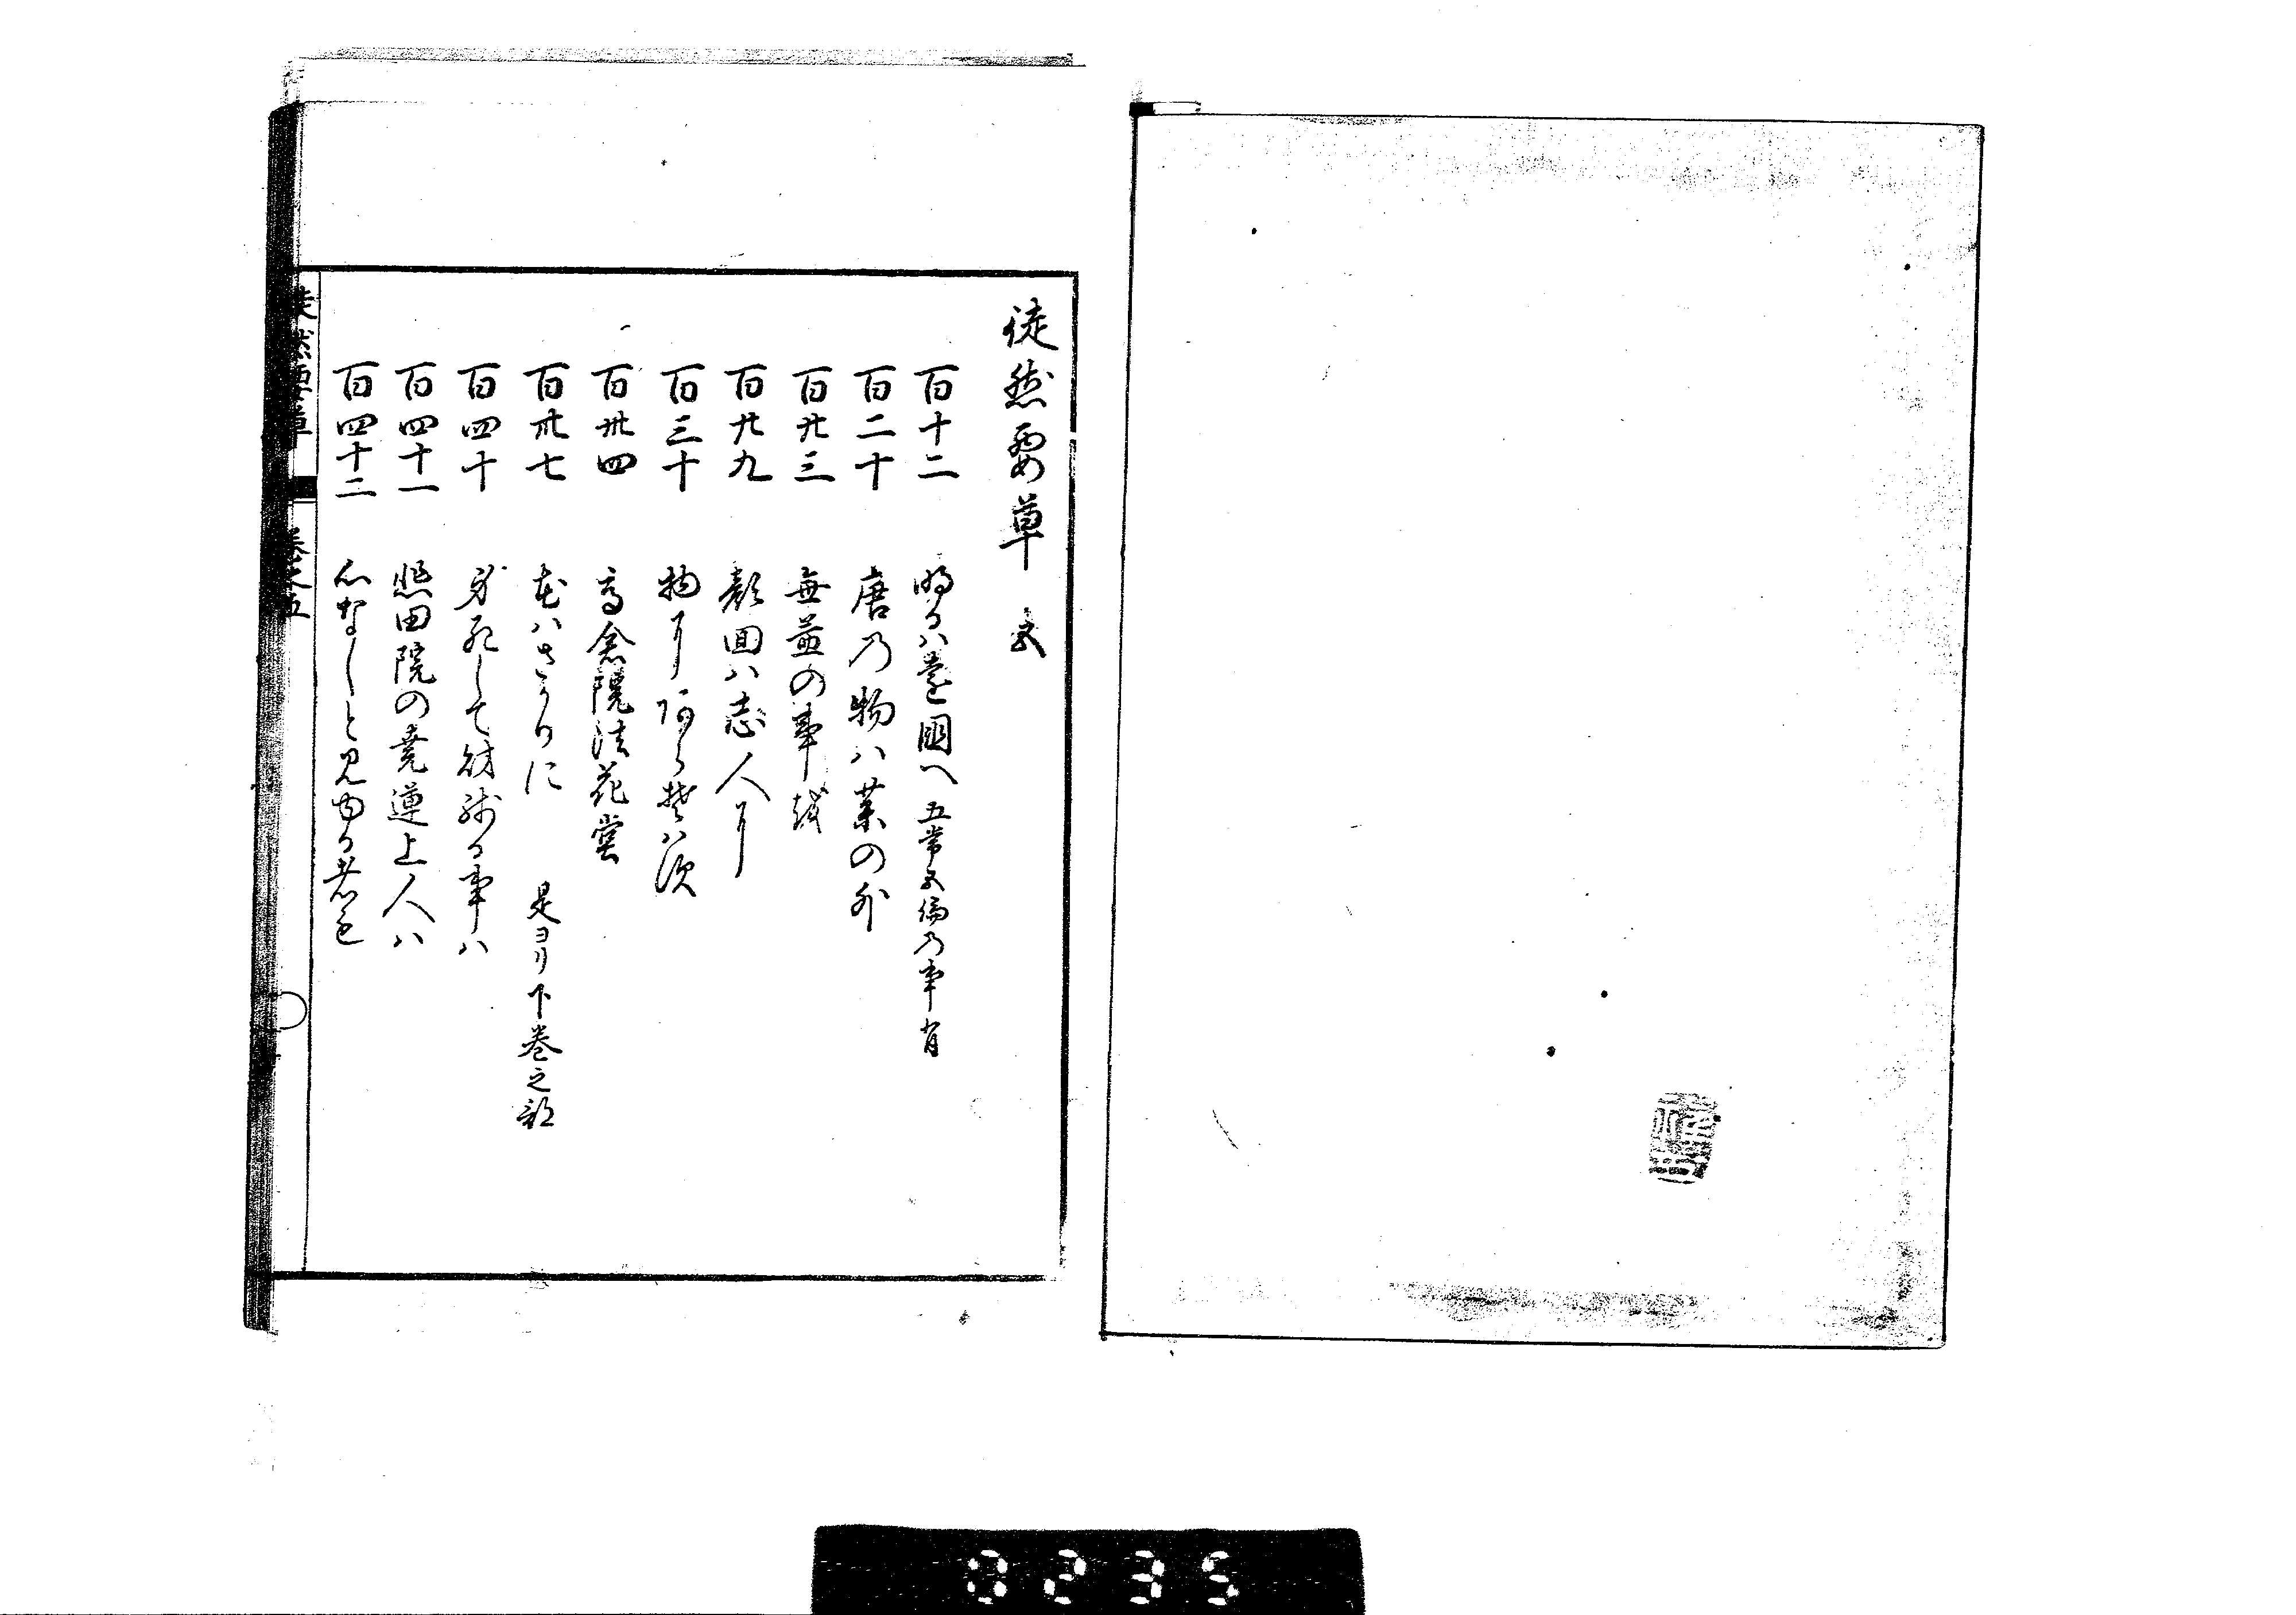 徒然要草 五
百十二 明日ハ遠國へ 五常五倫乃事肖
百二十 唐乃物ハ薬の外
百廿三 無益の事越
百廿九 顔回ハ志人に
百三十 物に阿らそハ須
百卅四 高倉院法花堂
百卅七 花ハさかりに 是ヨリ下巻之部
百四十 身死して財残る事ハ
百四十一 悲田院の堯蓮上人ハ
百四十二 心なしと見ゆる者も
徒然要草 巻之五
0235